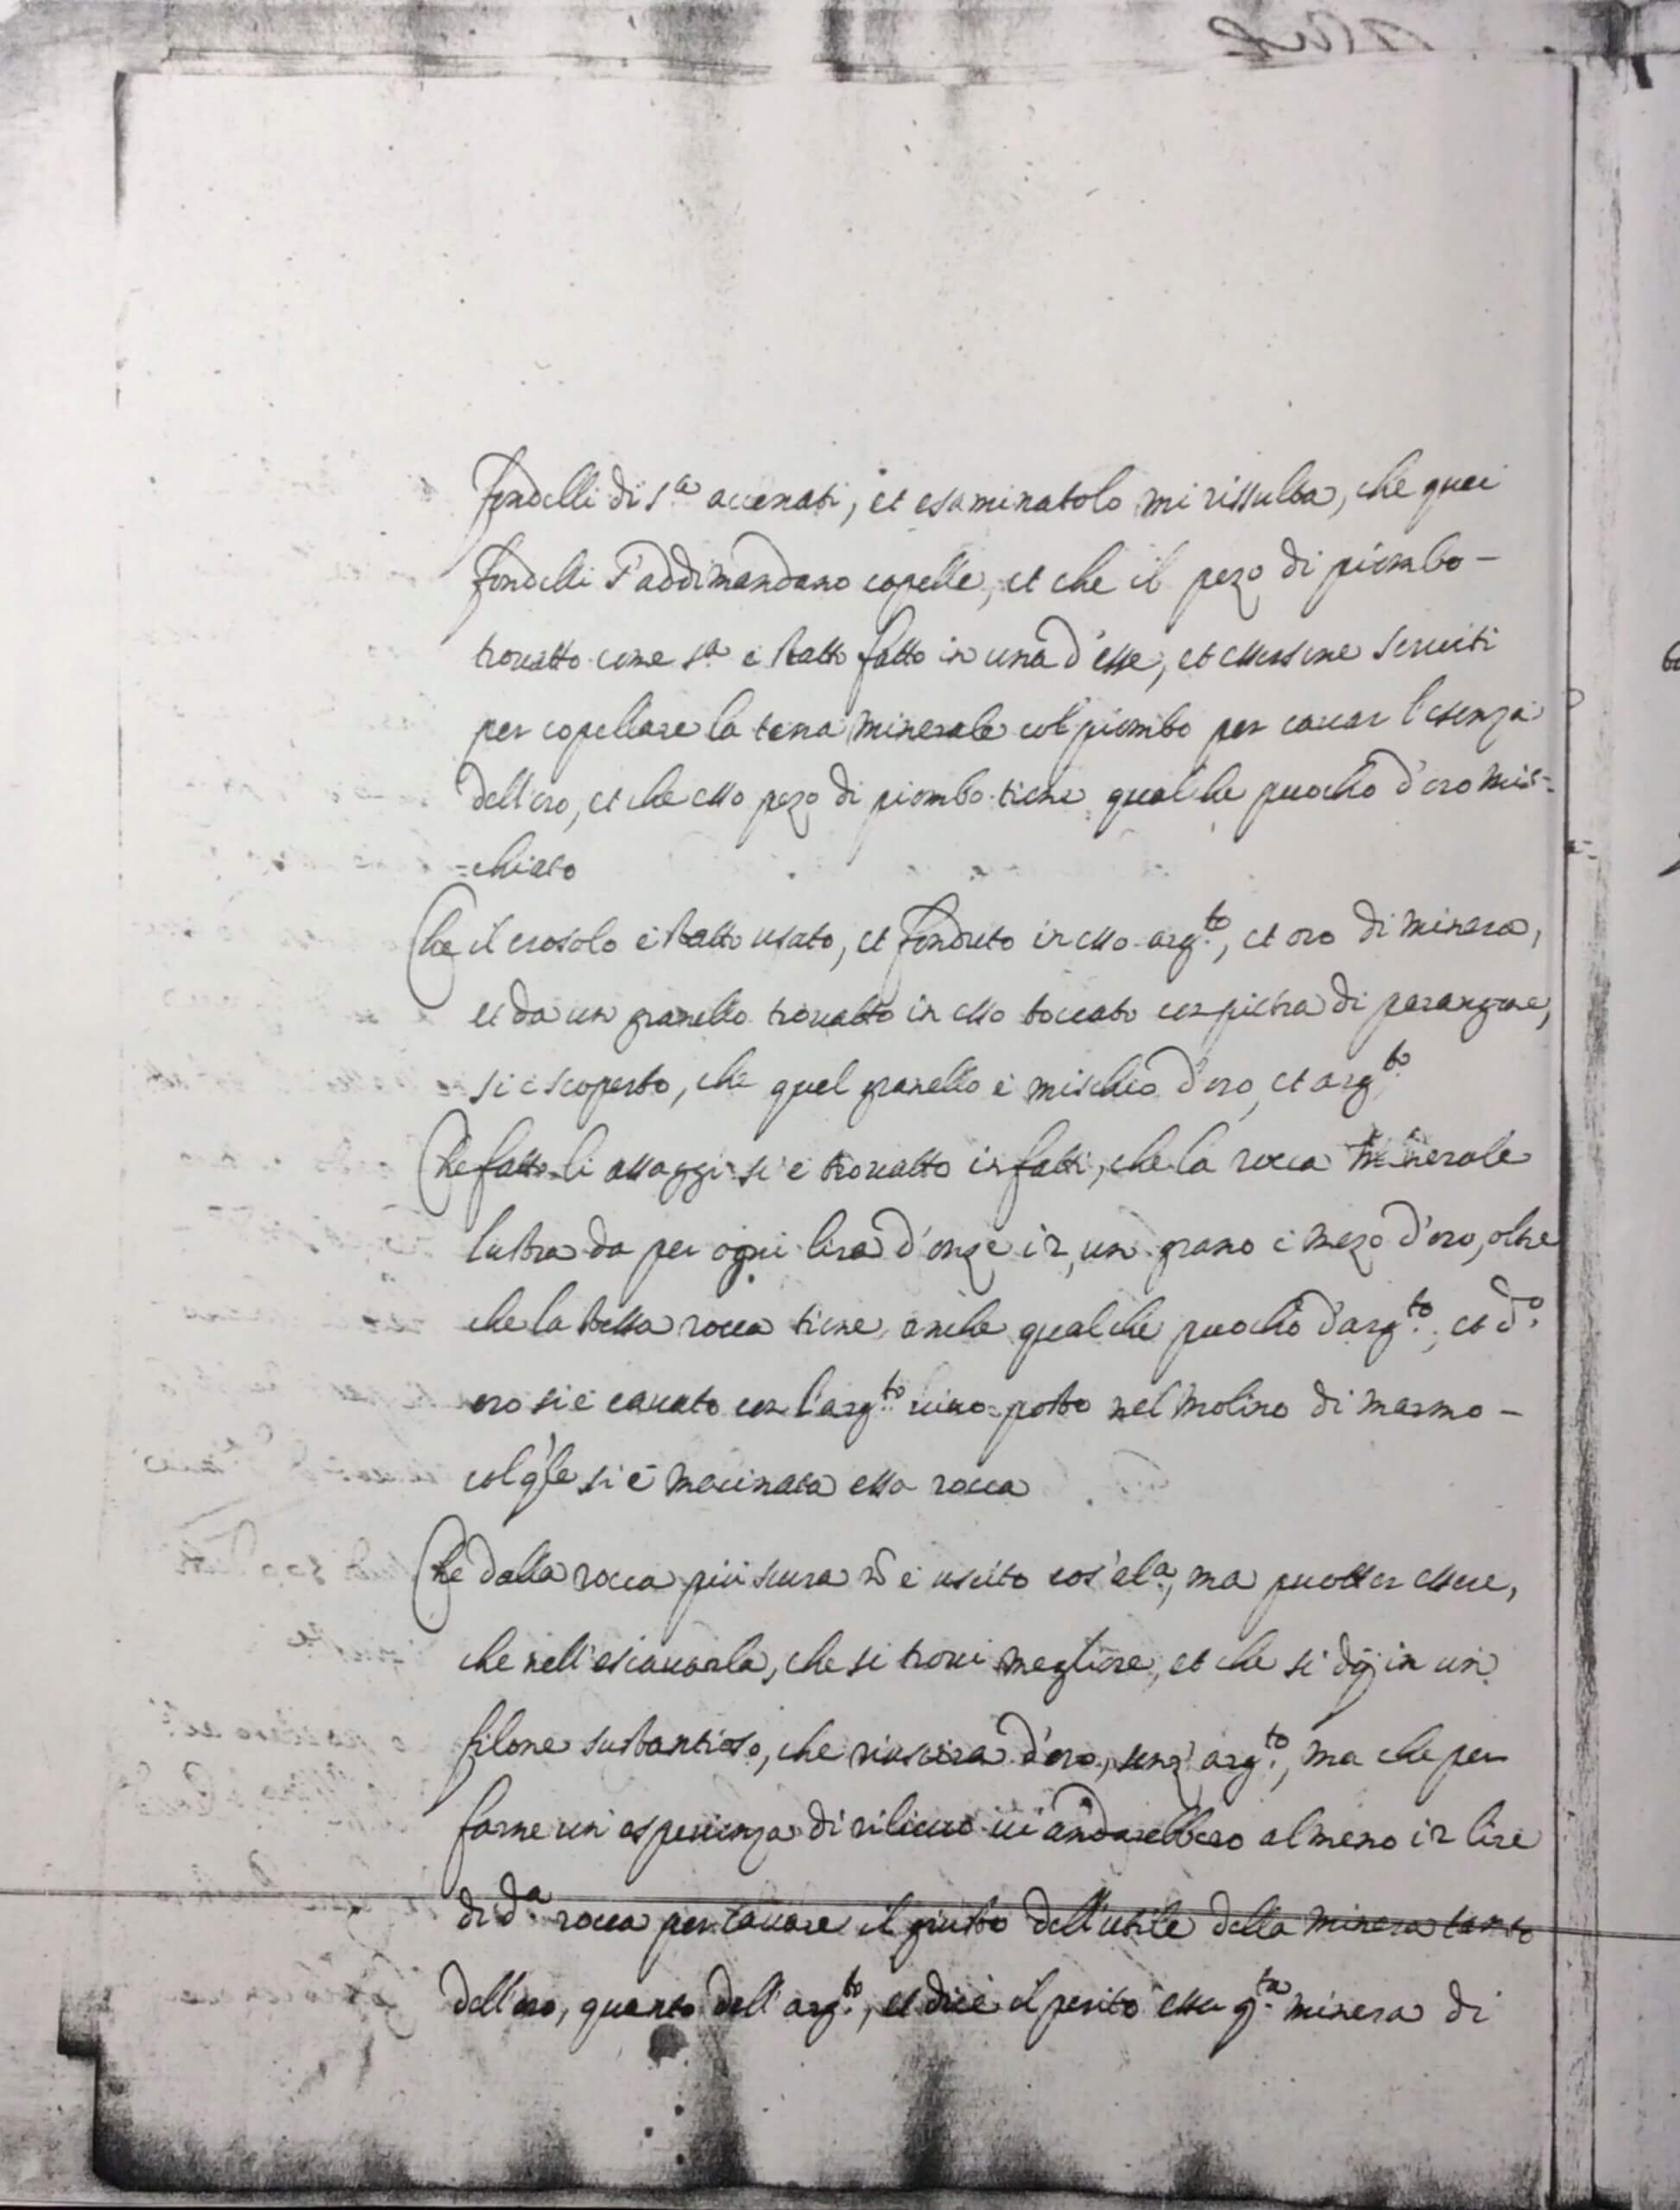 fondelli di s.a accenati, et esaminatolo mi rissulta, che quei
fondelli s'addimandano copelle, et che il pezo di piombo -
trovatto come s.a è statto fatto in una d'esse, et essersene serviti
per copellare la terra minerale col piombo per cavar l'esenza
dell'oro, et che esso pezo di piombo tiene qualche puocho d'oro mis=
=chiato
Che il crosolo è statto usato, et fonduto in esso arg.to, et oro di minera,
et da un granello trovatto in esso toccato con pietra di parangone,
si è scoperto, che quel granello è mischio d'oro, et arg.to
Che fatto li assaggi si è trovatto in fatti, che la rocca minerale
lustra da per ogni lira d'onze 12, un grano e mezo d'oro, oltre
che la stessa rocca tiene anche qualche puocho d'arg.to, et d.o
oro si è cavato con l'arg.to vivo posto nel molino di marmo -
col q'le si è macinata essa rocca
Che dalla rocca più scura nō è uscito cos'al.a, ma puotter essere,
che nell'escavarla, che si trovi megliore, et che si dij in un
filone sustantioso, che riuscirà d'oro, senz'arg.to, ma che per
farne un'esperienza di rilievo vi andarebbero almeno 12 lire
di d.a rocca per cavare il giusto dell'utile della minera tanto
dell'oro, quanto dell'arg.to, et dice il perito esser q.ta minera di